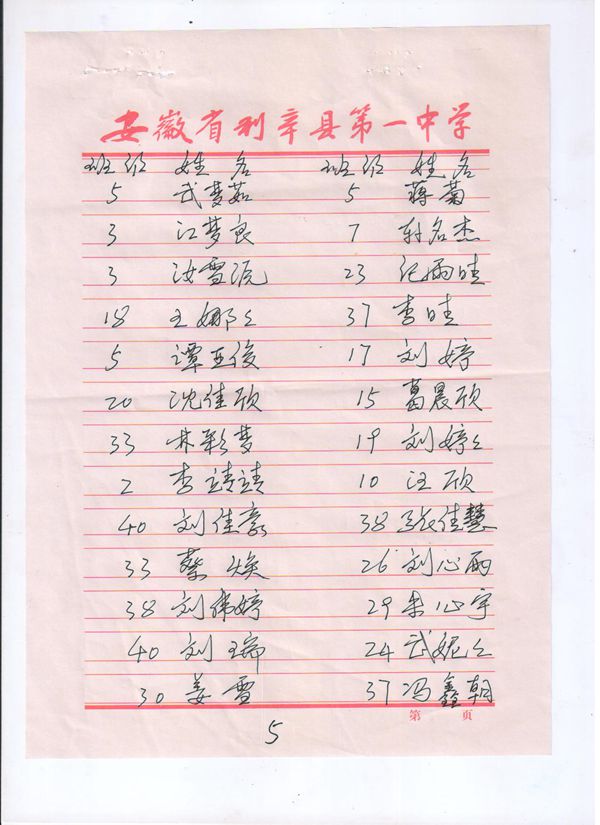 安徽省利辛县第一中学
班级 姓名 班级 姓名
5 武梦茹 5 蒋菊
3 江梦良 7 名杰
3 汝雪 23 纪雨晴
18 王娜娜 37 李晴
5 谭亚俊 17 刘婷
20 沈佳欣 15 葛晨欣
33 林彩梦 19 刘婷婷
2 李靖靖 10 汪欣
40 刘佳豪 38 张佳慧
33 蔡焕 26 刘心雨
38 刘伟婷 29 心宇
40 刘瑞 24 武妮妮
30 姜雪 37 冯鑫朝
第 页
5